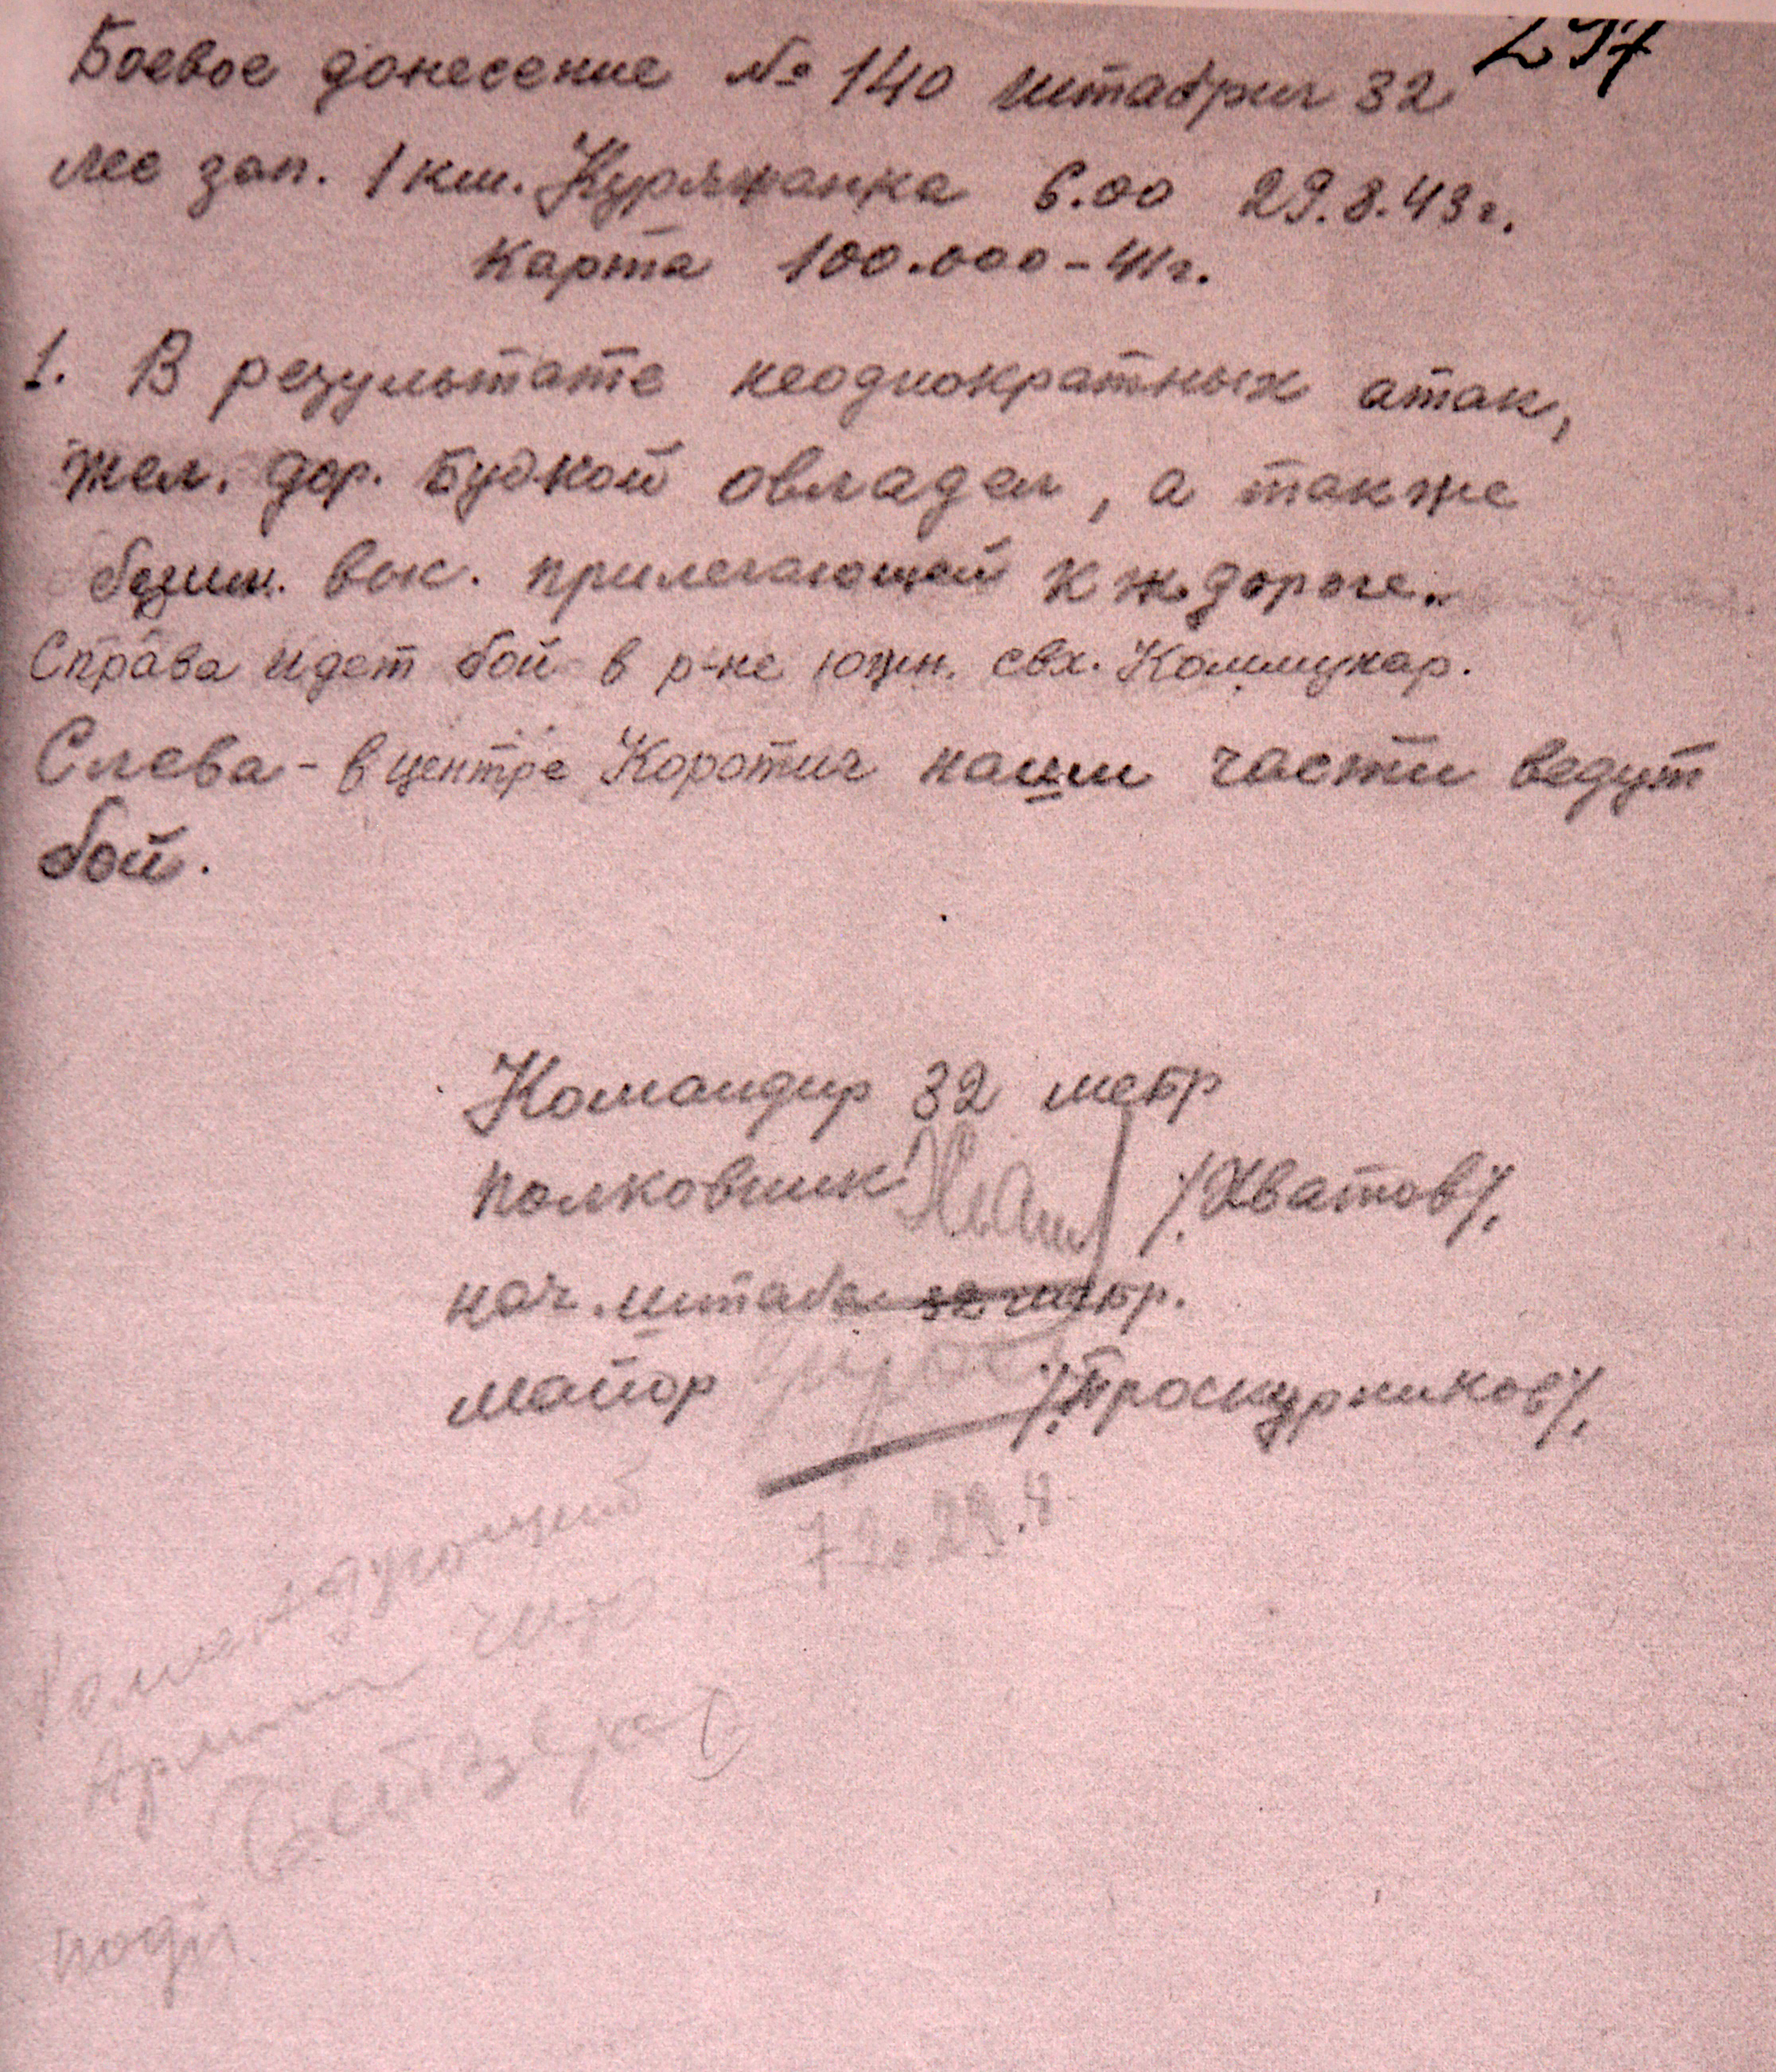 297
Боевое донесение № 140 штабриг 32
лес зап. 1 км. Куряжанка 6.00 29.8.43г.
Карта 100.000-41г.
1. В результате неоднократных атак,
жел. дор. будкой овладел, а также
безим. выс. прилегающей к ж.дороге.
Справа идет бой в р-не южн. свх. Коммунар.
Слева - в центре Коротич наши части ведут
бой.
Командир 32 мсбр
полковник /Хватов/.
нач. штаба 32 мсбр.
майор /Проскурников/.
Командующий
Армии